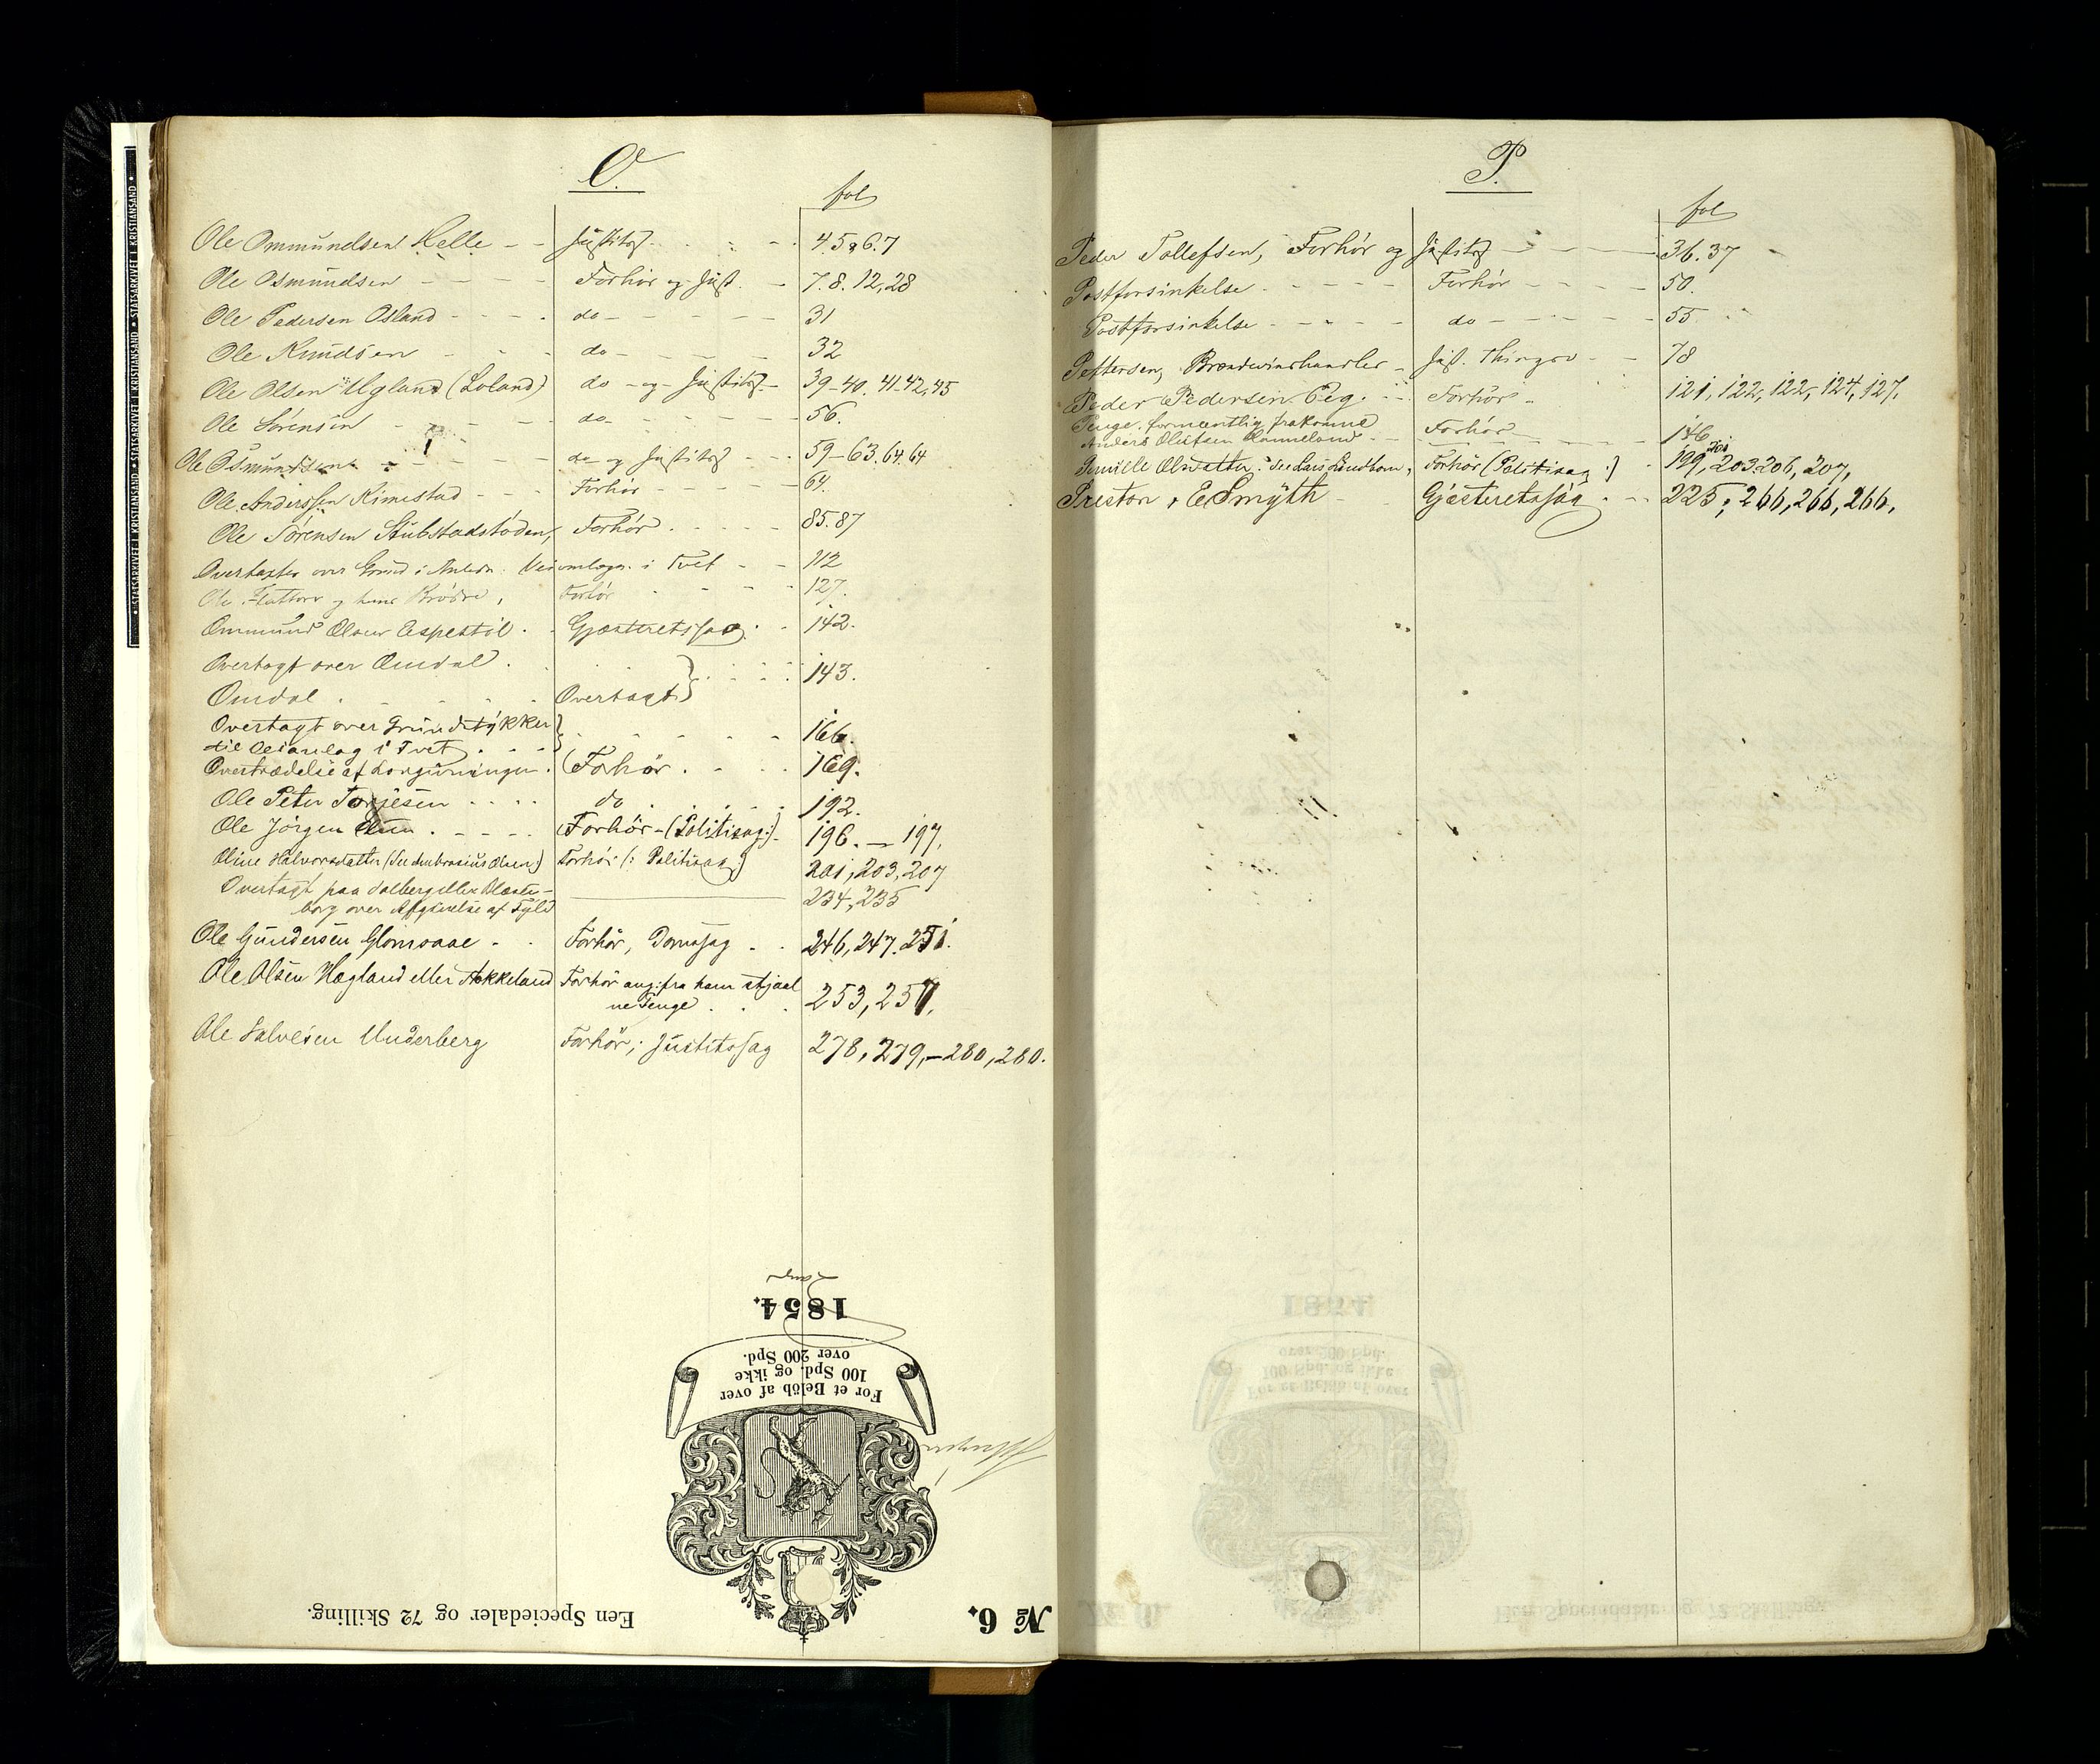 O.
fol
Ole Ommundsen Helle - - Justitss. - - 4.5.6.7
Ole Osmundsen - - - Forhör og Just. - 7.8.12,28
Ole Pedersen Osland - - - do - - - - 31
Ole Knudsen - - - do - - - - 32
Ole Olsen Ugland (Loland) do - og Justitss - 39-40.41-42,45
Ole Sörensen - - - do - - - - 56.
Ole Osmundsen - - - do og Justitss - - 59-63.64.64
Ole Anderssen Rimestad - - - Forhör - - - - 64.
Ole Sörensen Stubstadstöden, Forhör - - - - 85.87
Overtaxter over Grund i Anledn. Veiomlægn. i Tvet - - 112
Ole og hans Brödre, Forhör - - - 127.
Ommund Olsen Espestöl - Gjæsteretssag - - 142.
Overtagt over Omdal
Omdal - - - Overtagt - - - 143.
Overtagt over Grundstykker
til Veianlæg i Tvet - - - 166.
Overtrædelse af Lovgivningen. Forhör - - - 169.
Ole Peter Torjesen - - - do - - - 192.
Ole Jörgen - - - Forhör - (Politisag:) 196. - 197.
Oline Halvorsdatter (See Ambrosius Olsen:) Forhör (: Politisag:) 201,203,207
Overtagt paa Dalberg eller Blæste-
borg over Afgivelse af Fyld 234,235
Ole Gundersen Glomsaae - - Forhör, Domssag - - 246,247.251.
Ole Olsen Høgland eller Stokkeland Forhör ang: fra ham stjaal
ne Penge - - - 253,257.
Ole Salvesen Underberg Forhör, Justitssag 278,279,-280,280.
1854.
For et Belöb af over
100 Spd. og ikke
over 200 Spd.
Een Speciedaler og 72 Skilling.
No 6.
P.
fol
Peder Tollefsen, Forhör og Justitss - - - 36.37
Postforsinkelse - - - - Forhör - - - - 50.
Postforsinkelse - - - - do - - - - 55
Pettersen, Brændevinshandler - Just. Thingsv - - 78
Peder Pedersen Eeg. - - Forhör - 121,122,122,124,127.
Penge, formentlig frakomne
Anders Olufsen - - Forhör - - - 146
Pernille Olsdatter: See Lars Lindthorn, Forhör (Politisag:) - 199,201,203.206,207,
Preston & E Smyth - Gjæsteretssag - - 225,266,266,266.
STATSARKIVET I KRISTIANSAND • STATSARKIVET I KRISTIANSAND • STATSARKIVET I KRISTIANSAND